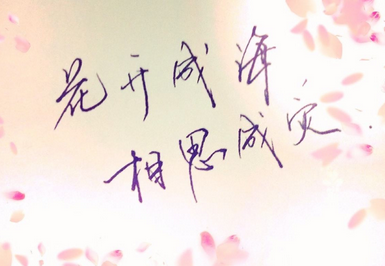 花开成海
相思成灾